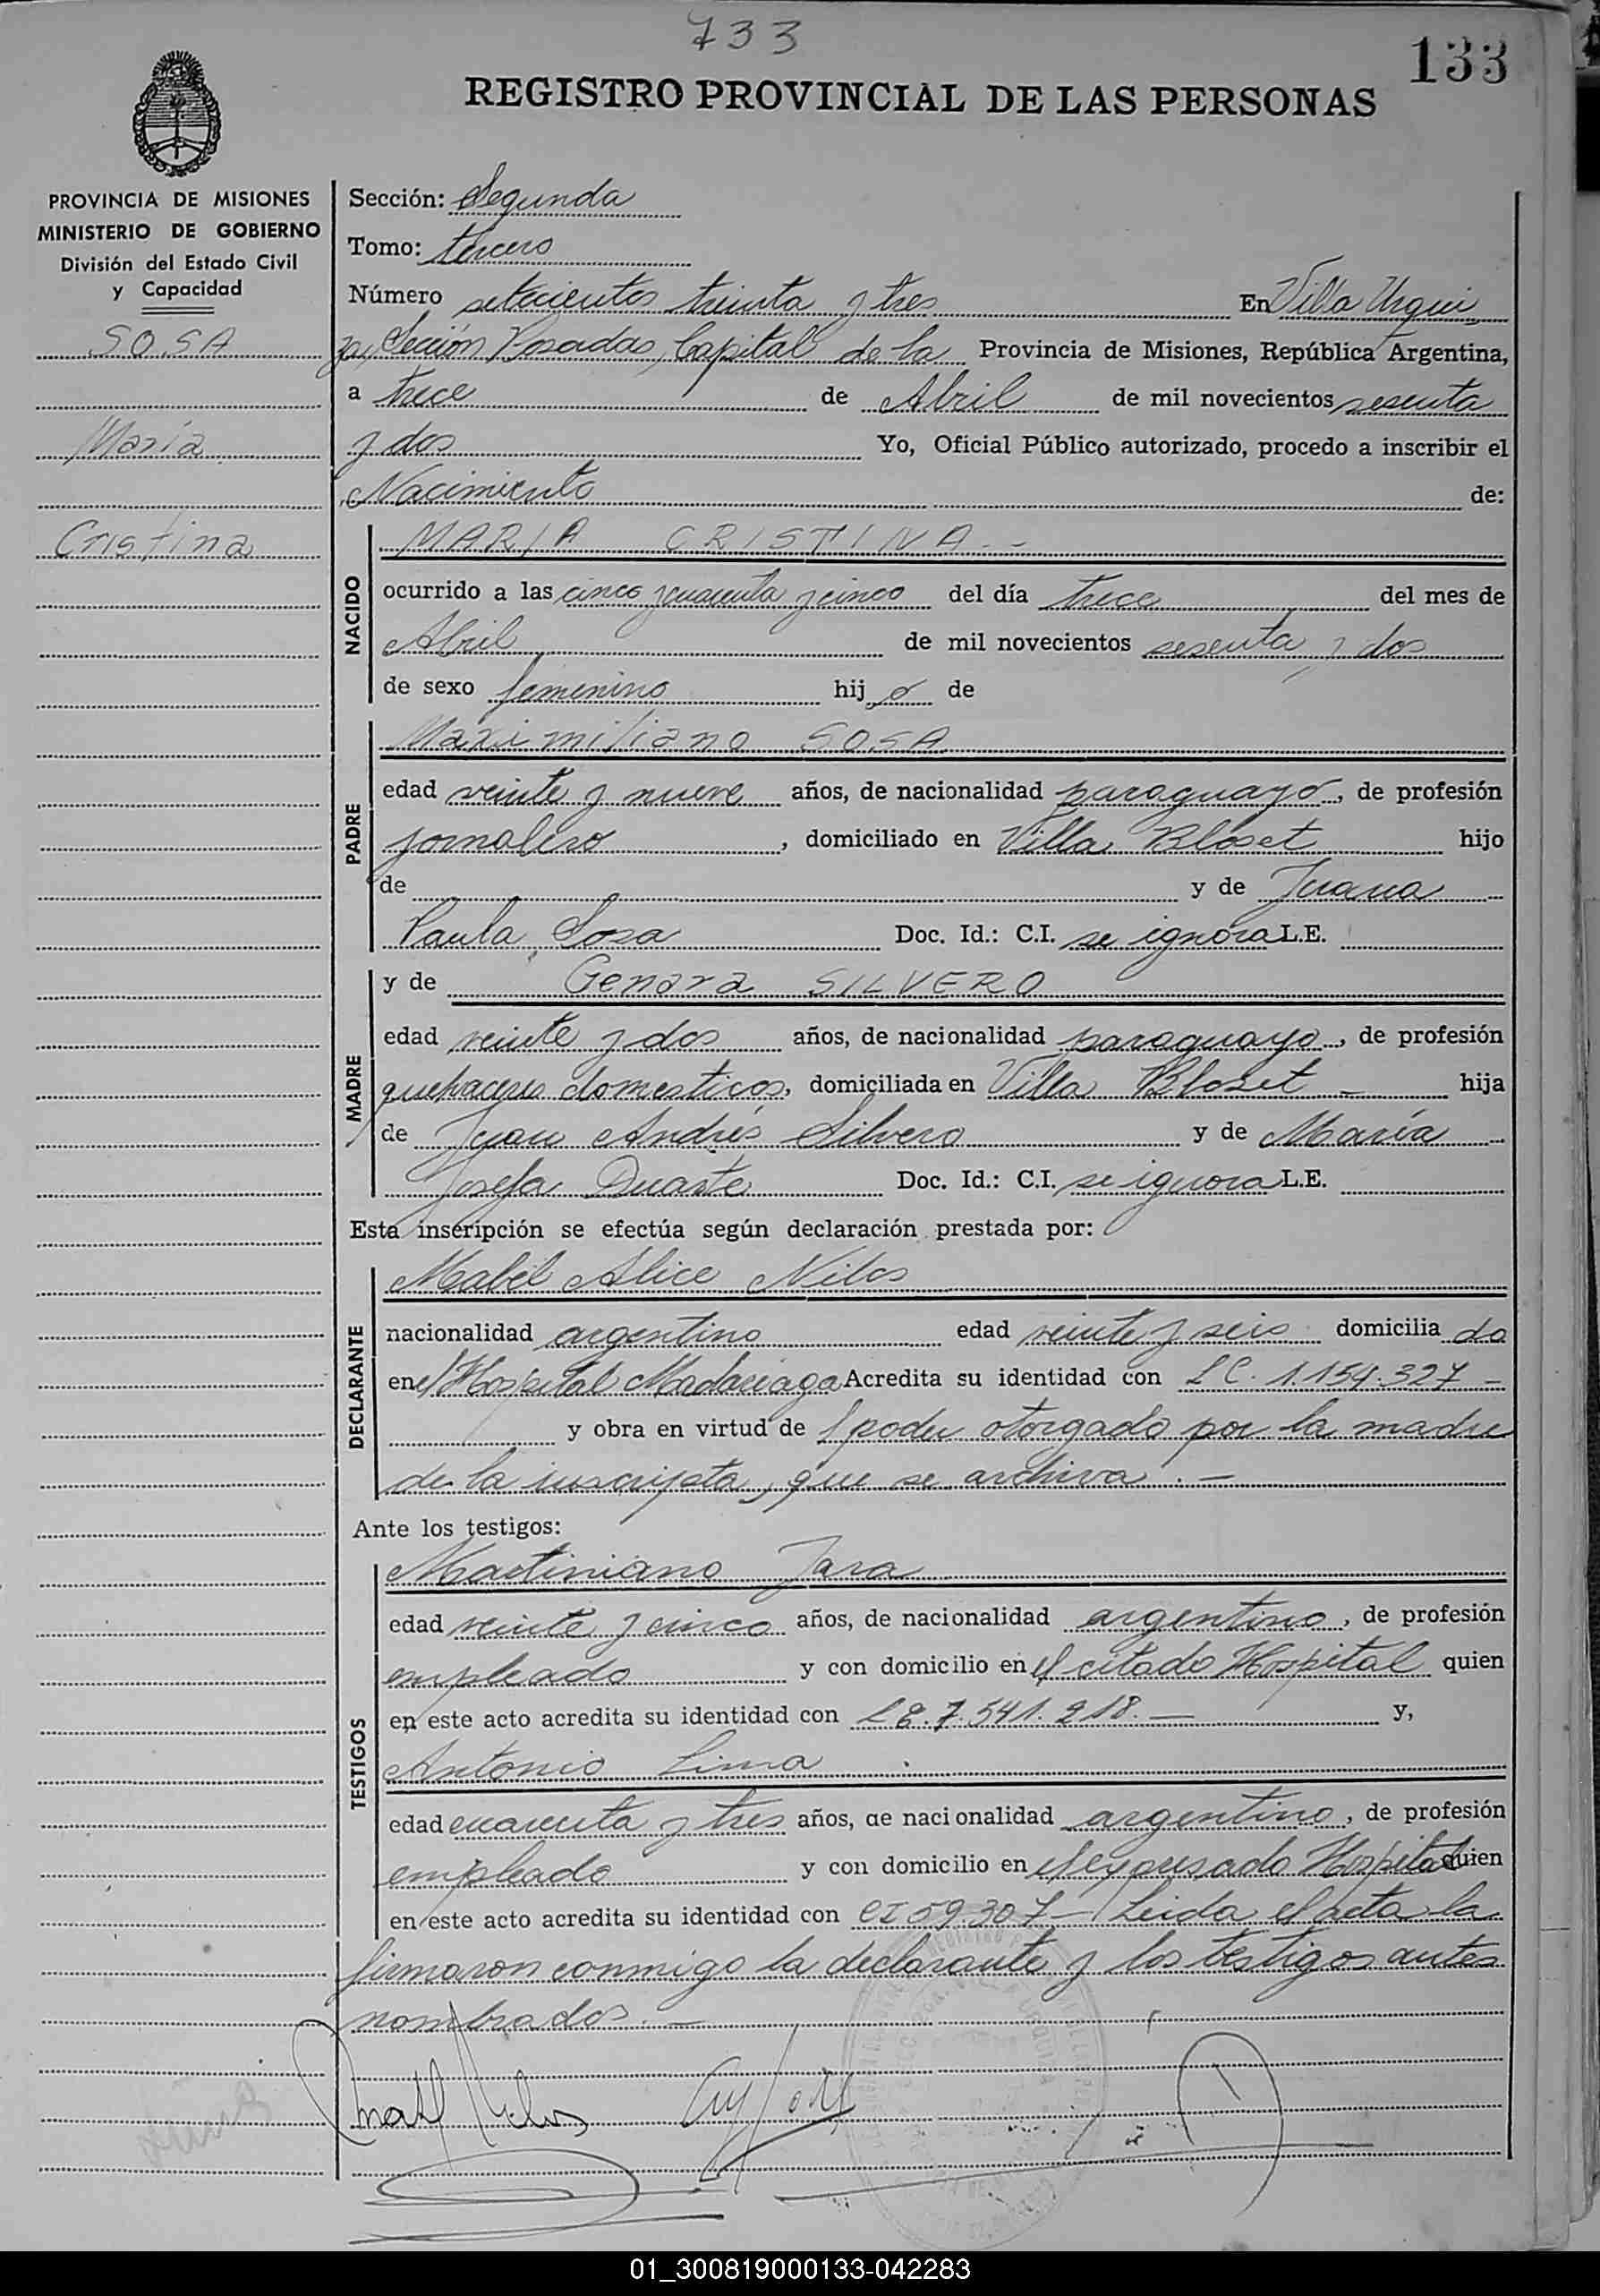 733
133
REGISTRO PROVINCIAL DE LAS PERSONAS
PROVINCIA DE MISIONES
MINISTERIO DE GOBIERNO
División del Estado Civil
y Capacidad
SOSA
María
Cristina
Sección: Segunda
Tomo: tercero
Número setecientos treinta y tres En Villa Urqui
za, Sección Posadas, Capital de la Provincia de Misiones, República Argentina,
a trece de Abril de mil novecientos sesenta
y dos Yo, Oficial Público autorizado, procedo a inscribir el
Nacimiento de:
NACIDO
MARIA CRISTINA.-
ocurrido a las cinco y cuarenta y cinco del día trece del mes de
Abril de mil novecientos sesenta y dos
de sexo femenino hij a de
PADRE
Maximiliano SOSA
edad veinte y nueve años, de nacionalidad paraguayo, de profesión
jornalero, domiciliado en Villa Bloset hijo
de y de Juana
Paula Sosa Doc. Id.: C.I. se ignora L.E.
MADRE
y de Genara SILVERO
edad veinte y dos años, de nacionalidad paraguayo, de profesión
quehaceres domesticos, domiciliada en Villa Bloset - hija
de Juan Andrés Silvero y de María
Josefa Duarte Doc. Id.: C.I. se ignora L.E.
Esta inscripción se efectúa según declaración prestada por:
DECLARANTE
Mabel Alice Nilos
nacionalidad argentino edad veinte y seis domicilia do
en el Hospital Madariaga Acredita su identidad con L C. 1.154.327 -
y obra en virtud de poder otorgado por la madre
de la inscripta, que se archiva.-
Ante los testigos:
TESTIGOS
Martiniano Jara
edad veinte y cinco años, de nacionalidad argentino, de profesión
empleado y con domicilio en el citado Hospital quien
en este acto acredita su identidad con L E. 7.541.218.- y,
Antonio Lima
edad cuarenta y tres años, de nacionalidad argentino, de profesión
empleado y con domicilio en el expresado Hospital quien
en este acto acredita su identidad con CI 59.307- Leida el acta la
firmaron conmigo la declarante y los testigos antes
nombrados.-
01_300819000133-042283